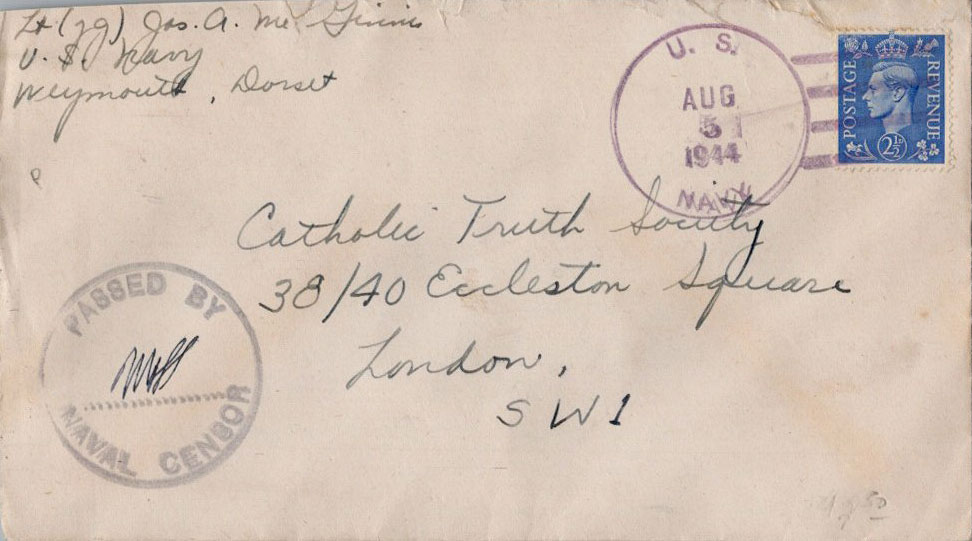 Lt (jg) Jas. A. Mc Ginnis
U. S. Navy
Weymouth, Dorset
U. S.
AUG
5
1944
NAVY
POSTAGE
REVENUE
2½D
Catholic Truth Society
38/40 Eccleston Square
London,
SW1
PASSED BY
NAVAL CENSOR